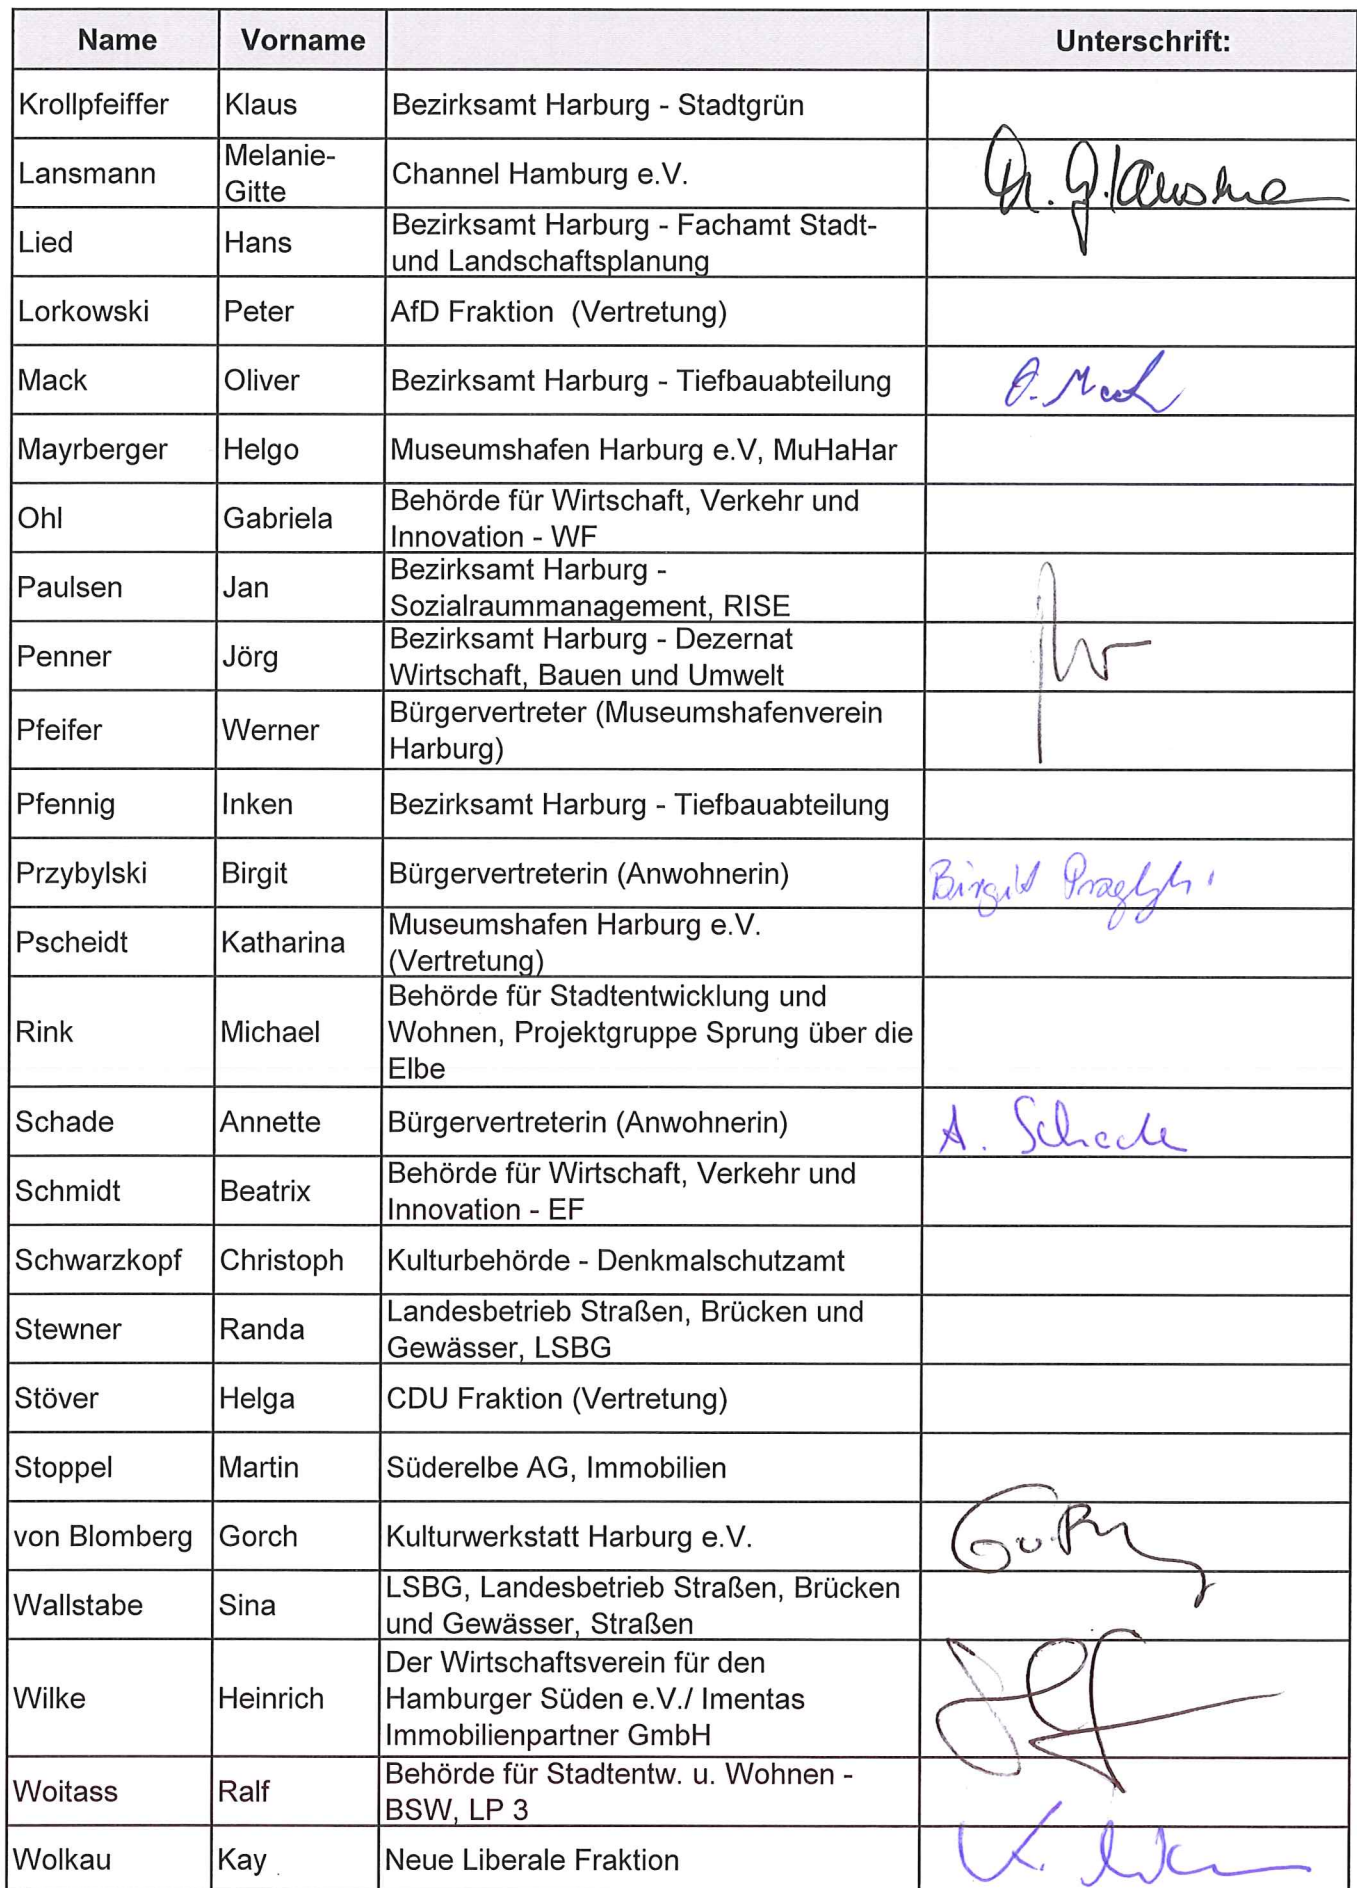 Name Vorname Unterschrift:
Krollpfeiffer Klaus Bezirksamt Harburg - Stadtgrün
Lansmann Melanie-
Gitte Channel Hamburg e.V.
Lied Hans Bezirksamt Harburg - Fachamt Stadt-
und Landschaftsplanung
Lorkowski Peter AfD Fraktion (Vertretung)
Mack Oliver Bezirksamt Harburg - Tiefbauabteilung O. Mack
Mayrberger Helgo Museumshafen Harburg e.V, MuHaHar
Ohl Gabriela Behörde für Wirtschaft, Verkehr und
Innovation - WF
Paulsen Jan Bezirksamt Harburg -
Sozialraummanagement, RISE
Penner Jörg Bezirksamt Harburg - Dezernat
Wirtschaft, Bauen und Umwelt
Pfeifer Werner Bürgervertreter (Museumshafenverein
Harburg)
Pfennig Inken Bezirksamt Harburg - Tiefbauabteilung
Przybylski Birgit Bürgervertreterin (Anwohnerin) Birgit
Pscheidt Katharina Museumshafen Harburg e.V.
(Vertretung)
Rink Michael Behörde für Stadtentwicklung und
Wohnen, Projektgruppe Sprung über die
Elbe
Schade Annette Bürgervertreterin (Anwohnerin) A. Schade
Schmidt Beatrix Behörde für Wirtschaft, Verkehr und
Innovation - EF
Schwarzkopf Christoph Kulturbehörde - Denkmalschutzamt
Stewner Randa Landesbetrieb Straßen, Brücken und
Gewässer, LSBG
Stöver Helga CDU Fraktion (Vertretung)
Stoppel Martin Süderelbe AG, Immobilien
von Blomberg Gorch Kulturwerkstatt Harburg e.V.
Wallstabe Sina LSBG, Landesbetrieb Straßen, Brücken
und Gewässer, Straßen
Wilke Heinrich Der Wirtschaftsverein für den
Hamburger Süden e.V./ Imentas
Immobilienpartner GmbH
Woitass Ralf Behörde für Stadtentw. u. Wohnen -
BSW, LP 3
Wolkau Kay Neue Liberale Fraktion